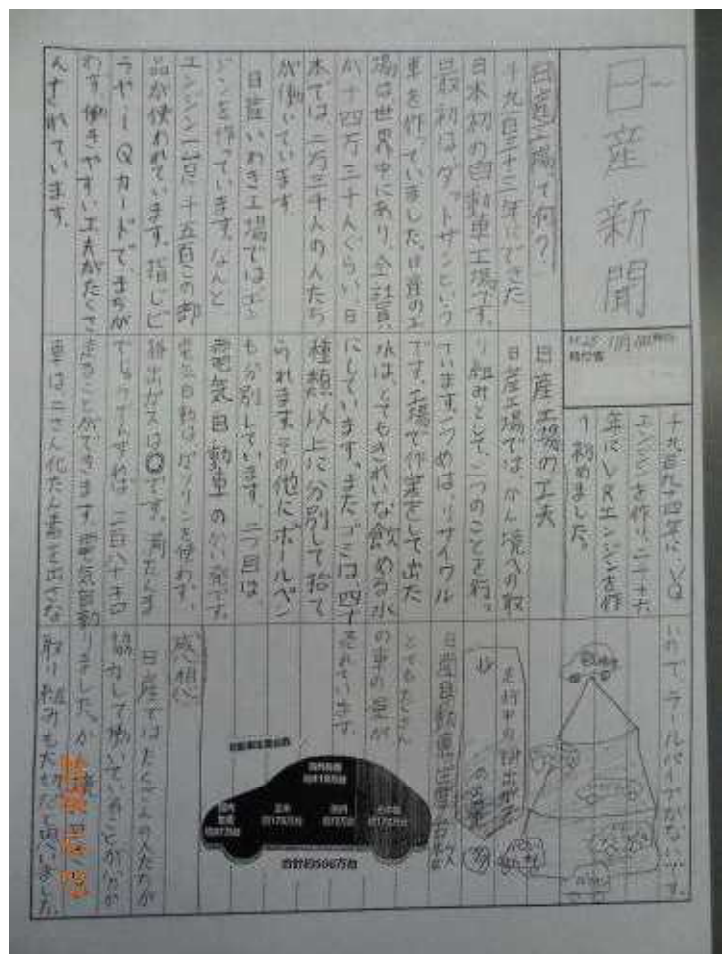 日産新聞
日産工場って何?
千九百三十三年にできた
日本初の自動車工場です。
最初は、ダットサンという
車を作っていました。日産の工
場は世界中にあり、会社員
が十四万三千人ぐらい、日
本では、二万三千人の人たち
が働いています。
日産いわき工場ではエン
ジンを作っています。なんと
エンジン一台に千五百この部
品が使われています。指しビ
ラや、IQカードで、まちが
わず働きやすい工夫がたくさ
んされています。
千九百九十四年に、VQ
エンジンを作り、二千十六
年にVRエンジンを作
り初めました。
日産工場の工夫
日産工場では、かん境への取
り組みとして、二つのことを行っ
ています。一つめは、リサイクル
です。工場で作業をして出た
水は、とてもきれいな飲める水
にしています。またゴミは、四十
種類以上に分別して捨て
られます。その他にボールペン
も分別しています。二つ目は、
電気自動車のかい発です。
電気自動は、ガソリンを使わず、
排出ガスは〇です。満たんま
でじゅうでんすれば、二百八十キロ
走ることができます。電気自動
車は、二さん化たん素を出さな
いので、テールパイプがない
走行中の排出ガス
とてもたくさん
の車の量が
売れています。
自動車生産台数
合計約506万台
感想
日産ではたくさんの人たちが
協力して働いていることが分か
りました。かん境
取り組みも大切だと思いました。